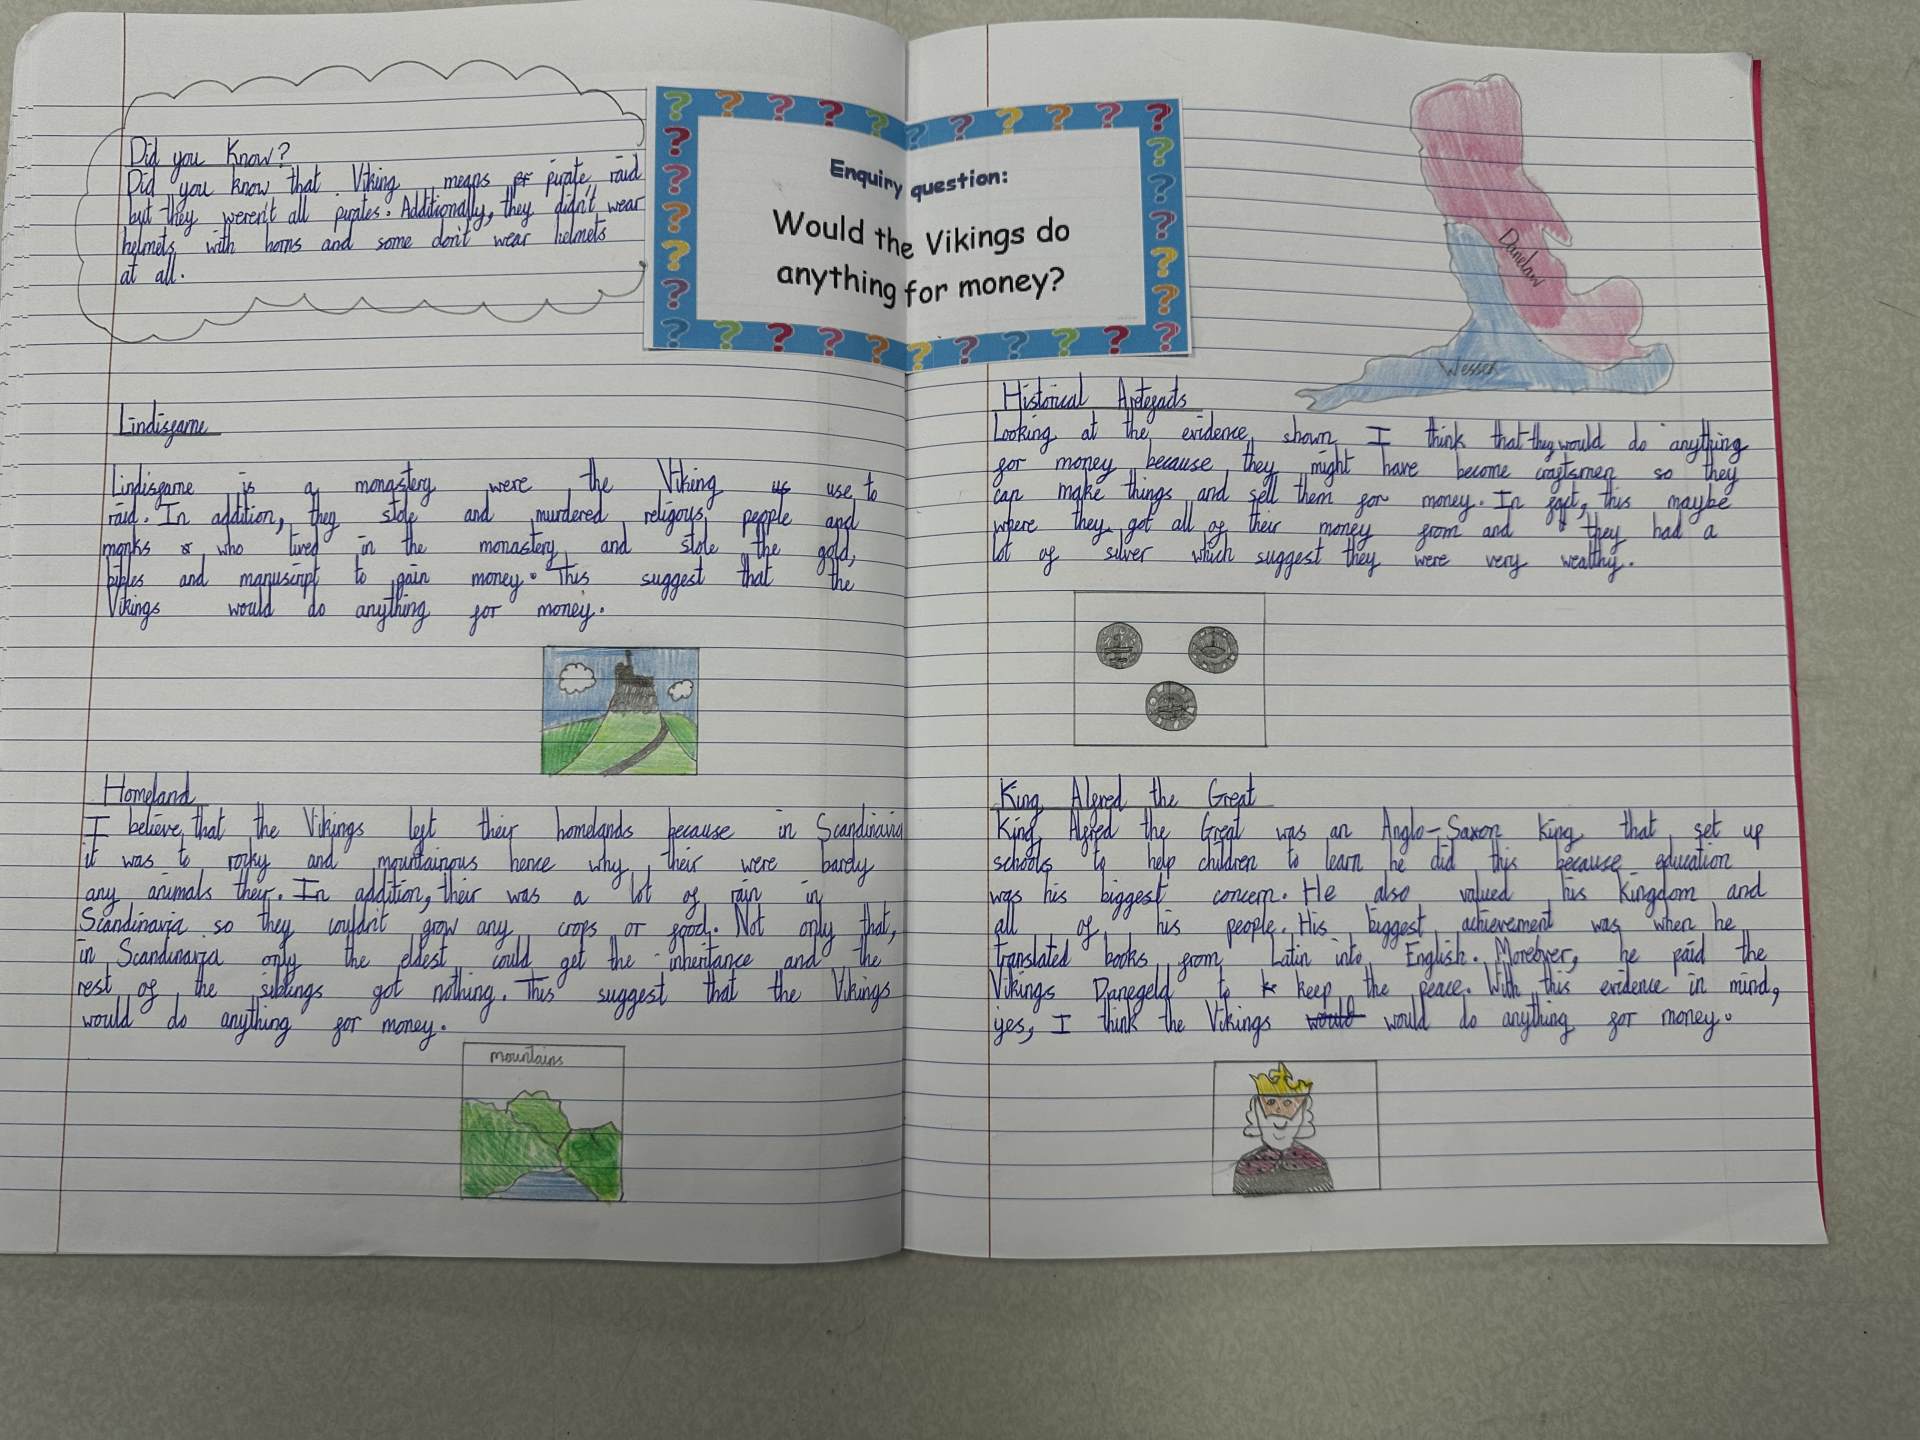 Did you Know?
Did you know that Viking means pirate, raid
but they weren't all pirates. Additionally, they didn't wear
helmets with horns and some don't wear helmets
at all.
Enquiry question:
Would the Vikings do
anything for money?
Lindisfarne
Lindisfarne is a monastery were the Viking us use to
raid. In addition, they stole and murdered religous people and
monks who lived in the monastery and stole the gold,
bibles and manuscript to gain money. This suggest that the
Vikings would do anything for money.
Homeland
I believe that the Vikings left their homelands because in Scandinavia
it was to rocky and mountainous hence why their were barely
any animals their. In addition, their was a lot of rain in
Scandinavia so they couldn't grow any crops or food. Not only that,
in Scandinavia only the eldest could get the inheritance and the
rest of the siblings got nothing. This suggest that the Vikings
would do anything for money.
mountains
Danelaw
Wessex
Historical Artefacts
Looking at the evidence shown I think that they would do anything
for money because they might have become craftsmen so they
can make things and sell them for money. In fact, this maybe
where they got all of their money from and they had a
lot of silver which suggest they were very wealthy.
King Alfred the Great
King Alfred the Great was an Anglo-Saxon King that set up
schools to help children to learn he did this because education
was his biggest concern. He also valued his Kingdom and
all of his people. His biggest achievement was when he
translated books from Latin into English. Moreover, he paid the
Vikings Danegeld to keep the peace. With this evidence in mind,
yes, I think the Vikings would would do anything for money.